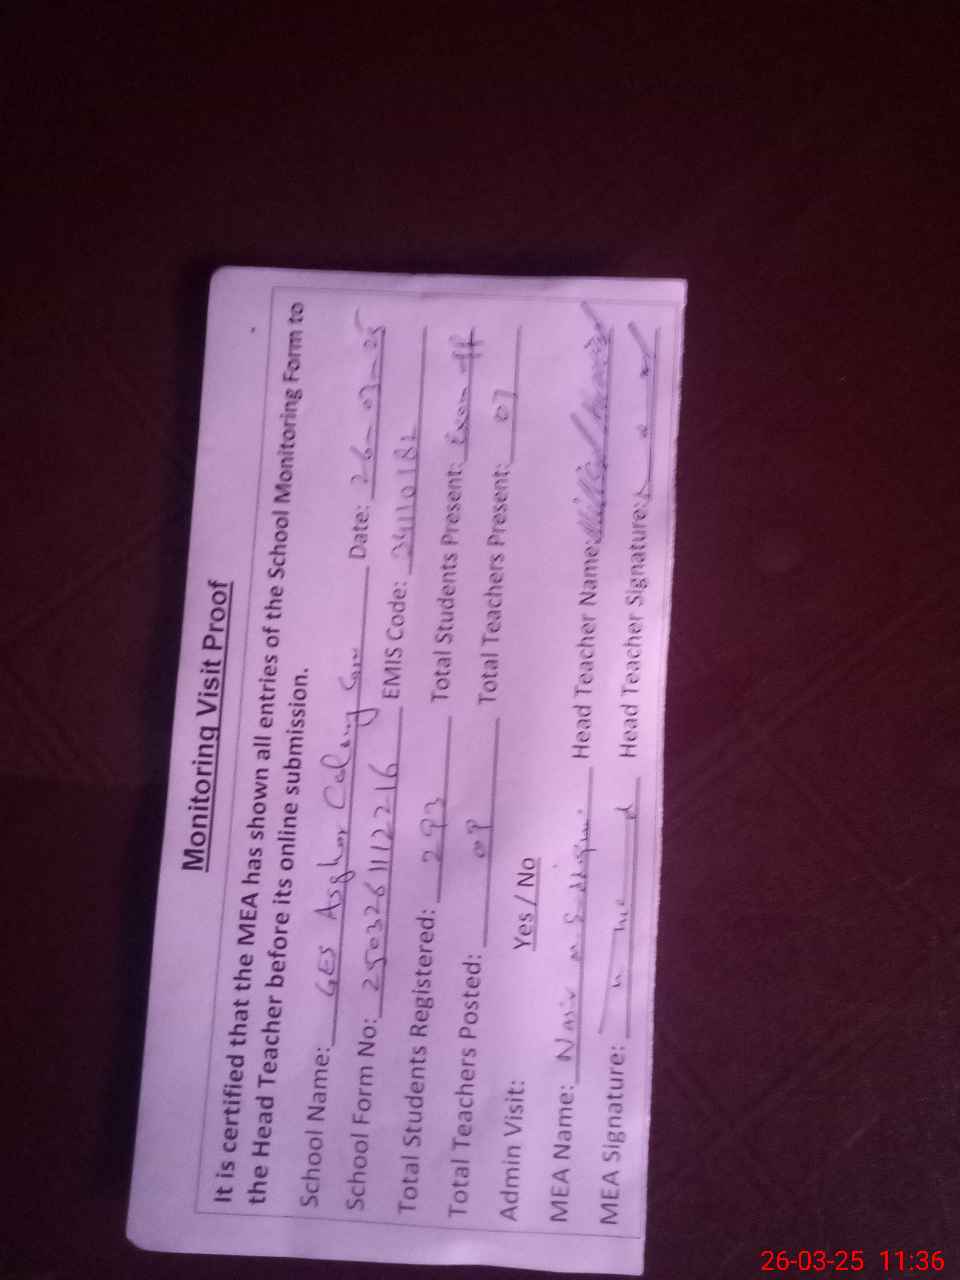 Monitoring Visit Proof
It is certified that the MEA has shown all entries of the School Monitoring Form to
the Head Teacher before its online submission.
School Name: GES Asghar Colony Date: 26-03-25
School Form No: 2503261112216 EMIS Code:
Total Students Registered: 293 Total Students Present: Exam off
Total Teachers Posted: 09 Total Teachers Present: 07
Admin Visit: Yes / No
MEA Name: Head Teacher Name:
MEA Signature: Head Teacher Signature:
26-03-25 11:36